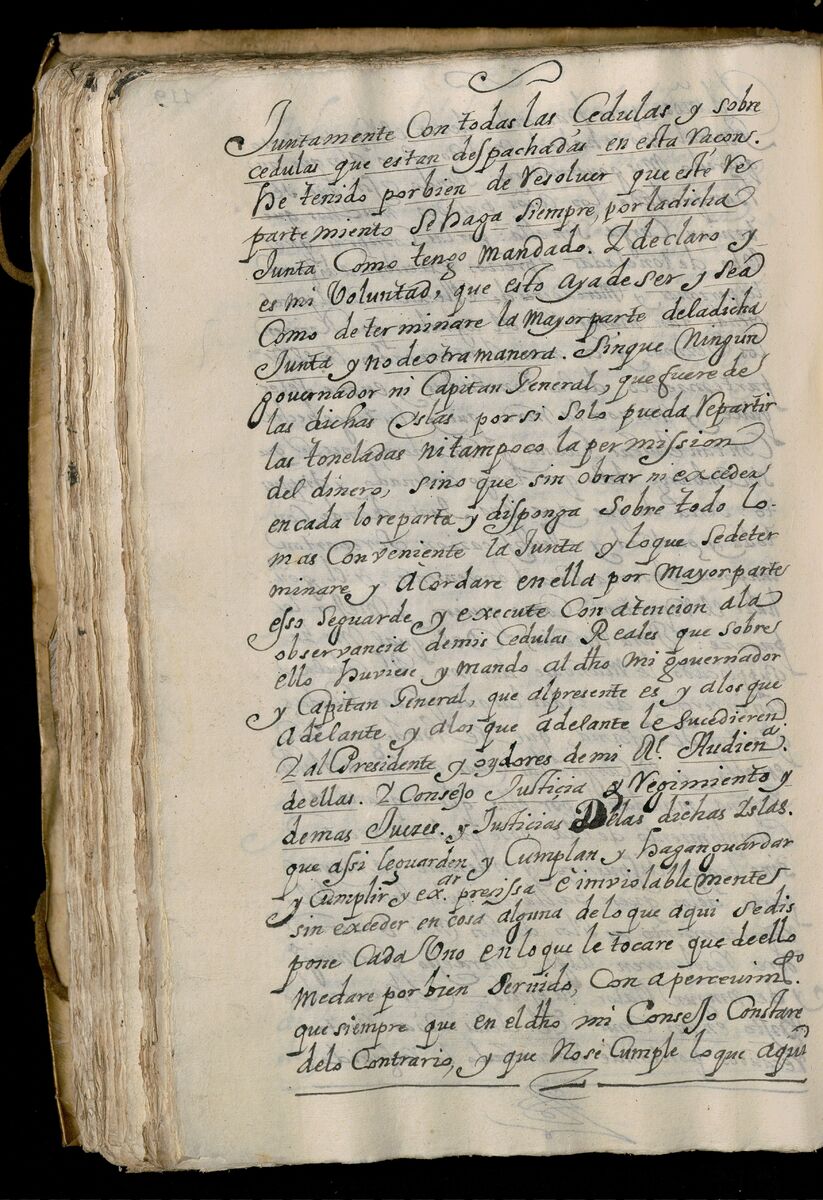 Juntamente Con todas las Cedulas y sobre
cedulas que estan despachadas en esta Racons.
he tenido por bien de Resoluer que este Re
partemiento se haga siempre, por ladicha
Junta Como tengo mandado. Y declaro y
es mi Voluntad, que esto aya de ser y sea
Como determinare la Mayor parte deladicha
Junta y no de otra manera. Sin que Ningun
governador ni Capitan General, que fuere de
las dichas Yslas por si solo pueda Repartir
las toneladas ni tampoco la permission
del dinero, sino que sin obrar ni exceder
en cada lo reparta y disponga sobre todo lo
mas Conveniente la Junta y lo que se deter
minare y Acordare en ella por Mayor parte
esso se guarde y execute Con atencion ala
observancia de mis Cedulas Reales que sobre
ello huviese y mando al dho mi governador
y Capitan General, que al presente es y alos que
Adelante y alos que adelante le Sucedieren.
Y al Presidente y oydores de mi Rl. Audiena.
de ellas. Y Consejo Justicia y Regimiento y
demas Juezes. y Justicias Delas dichas Yslas.
que assi lo guarden y Cumplan y hagan guardar
y Cumplir y exar. presissa e imviolable mente
sin exceder en cosa alguna de lo que aqui se dis
pone Cada Uno en lo que le tocare que de ello
Me dare por bien Servido, Con apercevimto.
que siempre que en el dho mi Consejo Constare
delo Contrario, y que No se Cumple lo que aqui